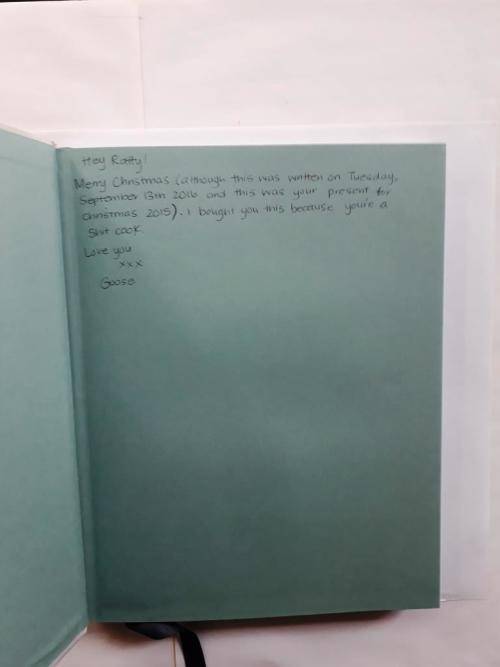 Hey Ratty!
Merry Christmas (although this was written on Tuesday,
September 13th 2016 and this was your present for
christmas 2015). I bought you this because you're a
shit cook.
Love you
xxx
Goose